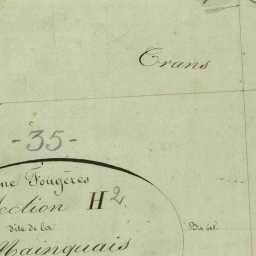 Trans
-35-
Fougères
Section H 2.
dite de la
Mainquais